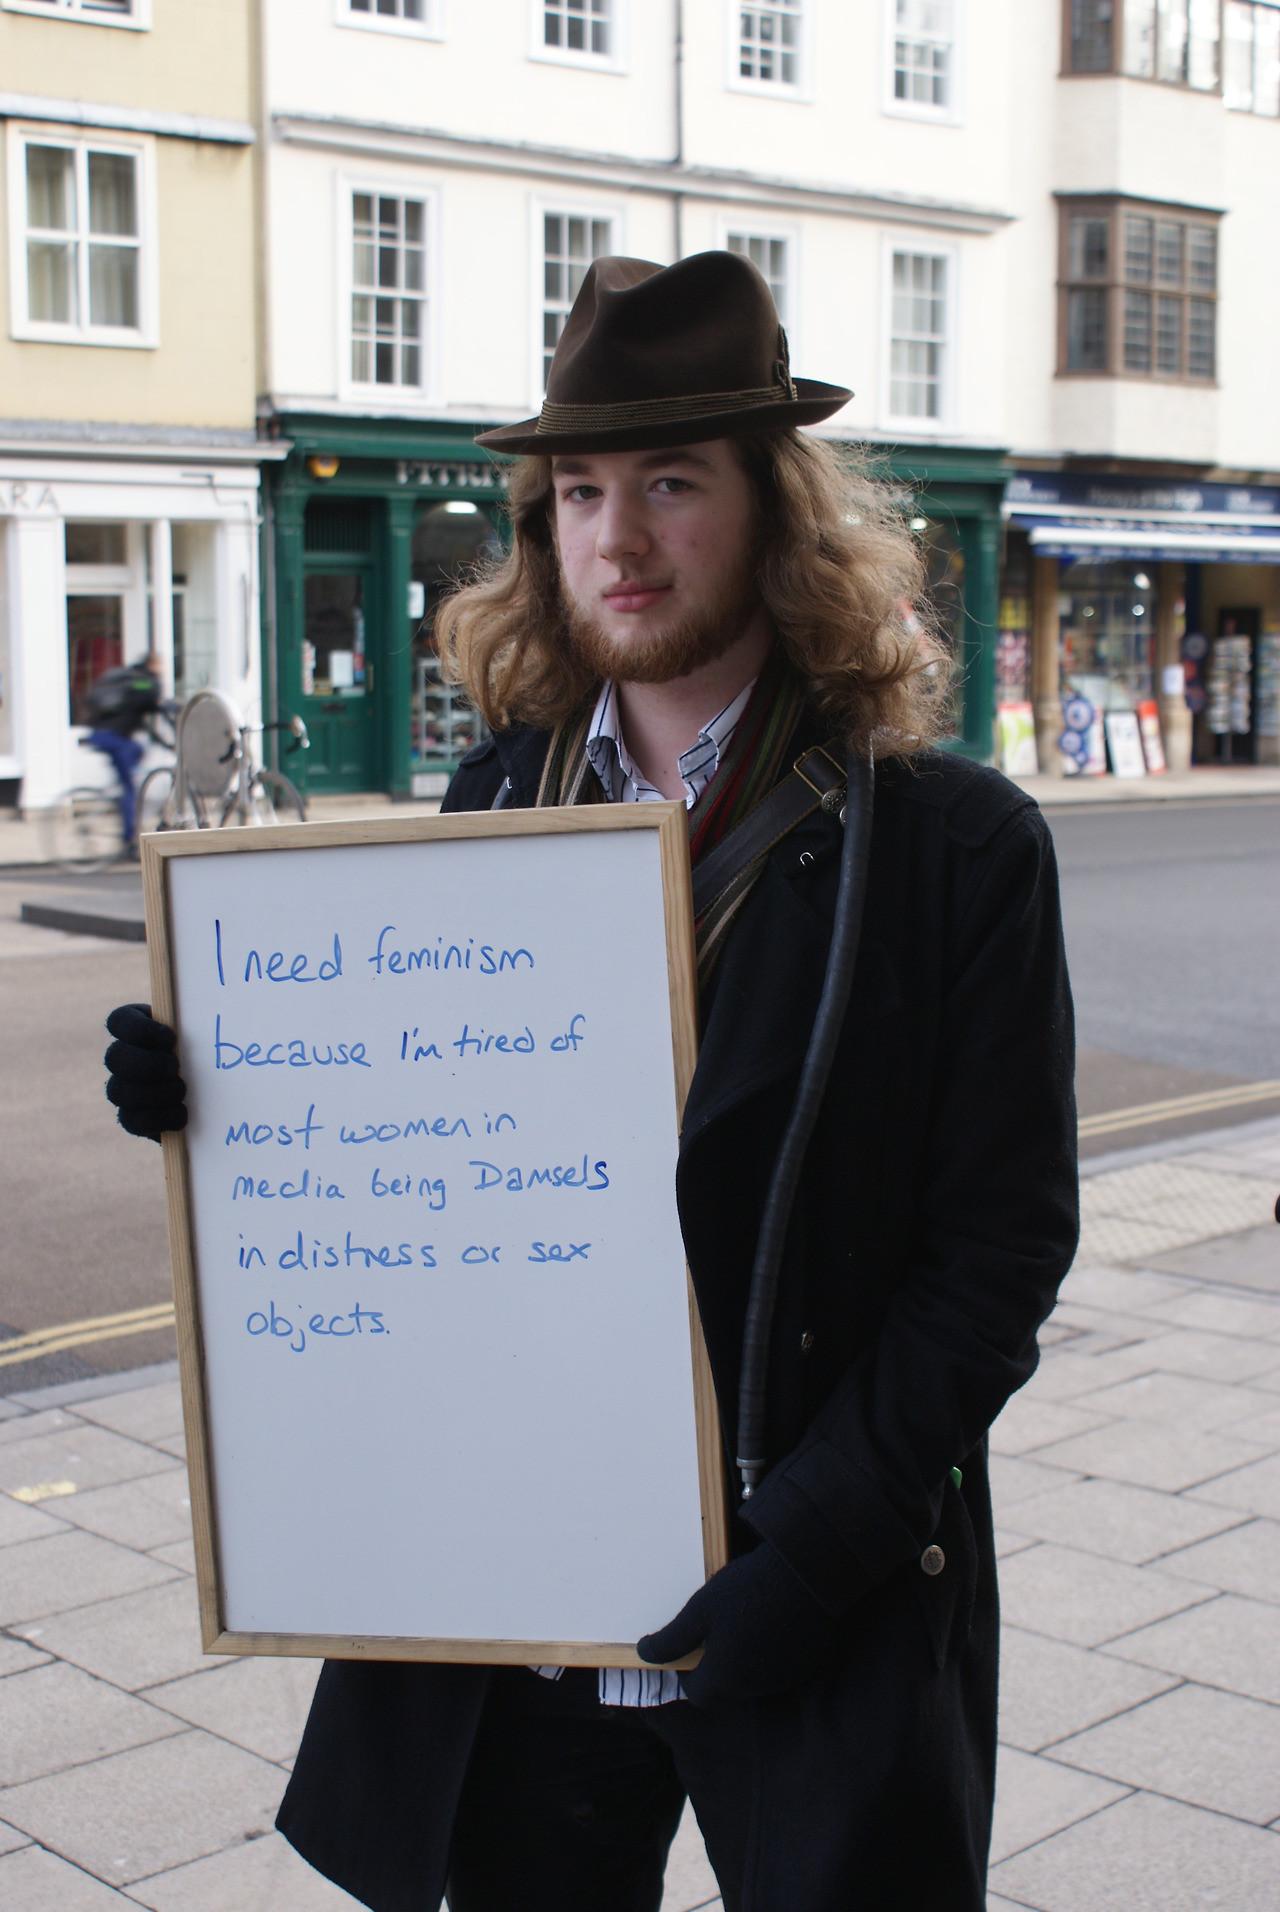 ARA
I need feminism
because I'm tired of
most women in
media being Damsels
in distress or sex
objects.